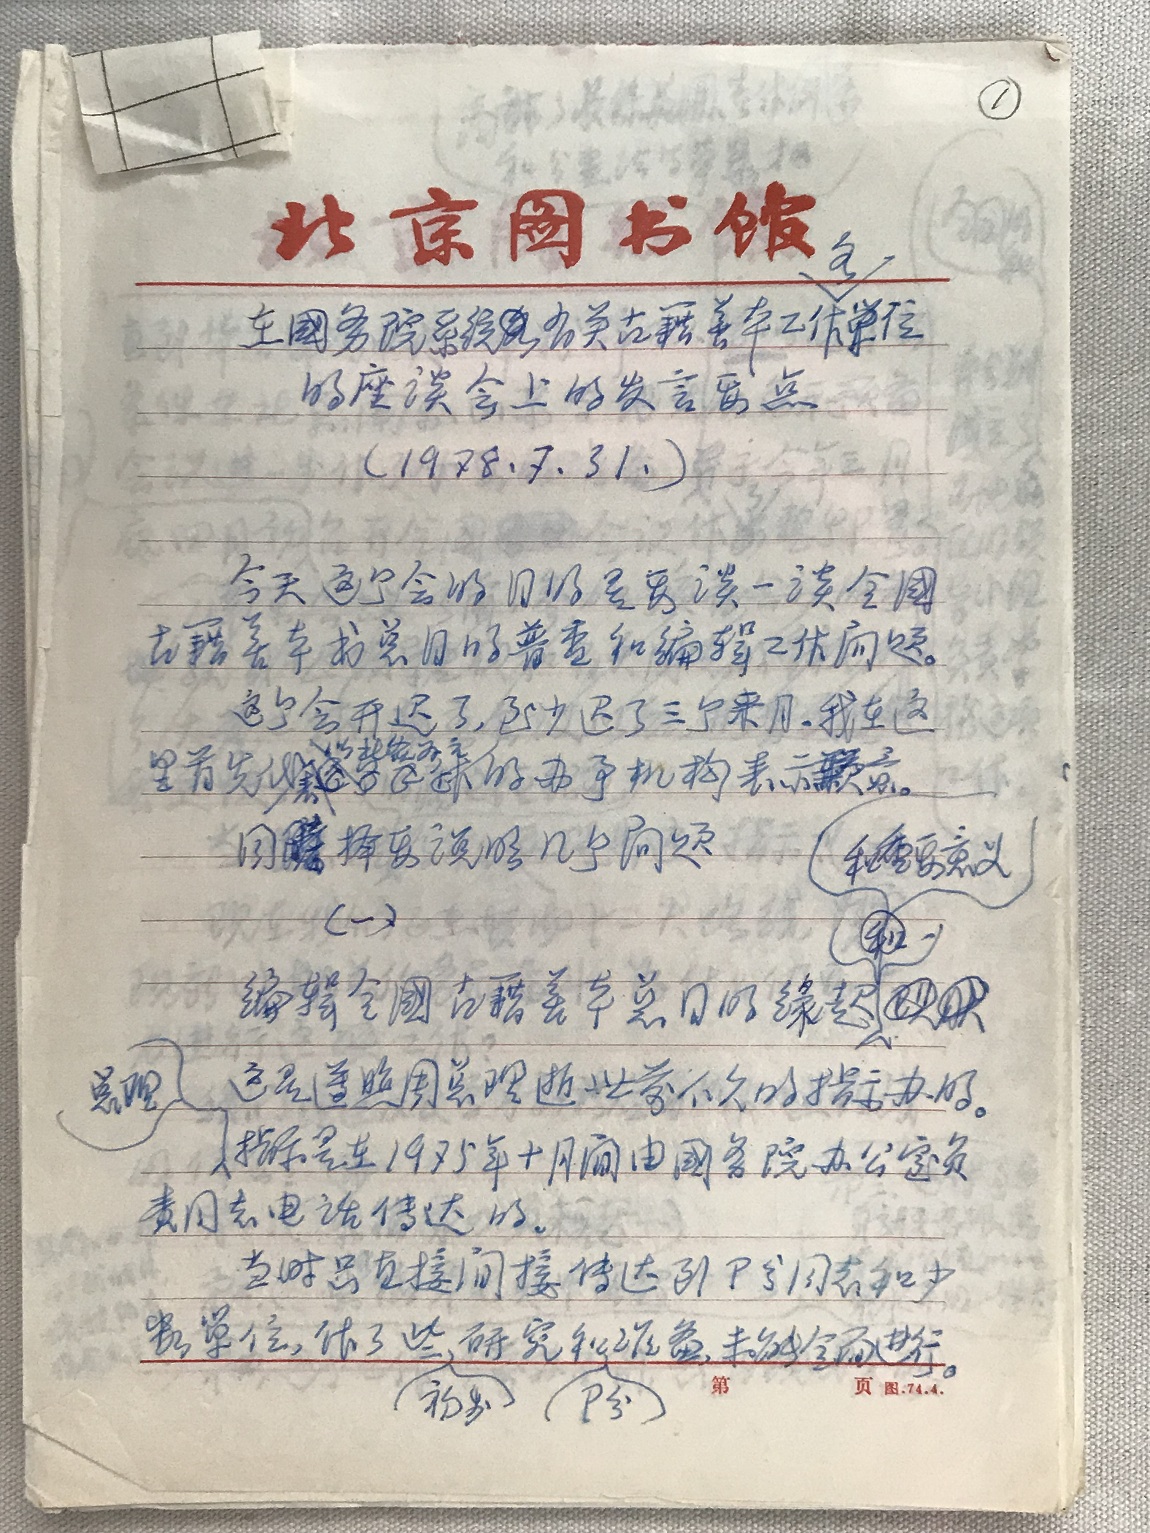 ①
北京图书馆
各
在國务院系统有关古籍善本工作单位
的座谈会上的发言要点
(1978.7.31.)
今天这个会的目的是要谈一谈全國
古籍善本书总目的普查和编辑工作问题。
这个会开迟了,至少迟了三个来月。我在这
里首先代 的办事机构表示歉意。
择要说明几个问题
和重要意义
(一)
编辑全國古籍善本总目的缘起
总理
这是遵照周总理逝世前不久的指示办的。
指示是在1975年十月间由國务院办公室负
责同志电话传达的。
当时只直接间接传达到P分同志和少
数单位,作了些研究和准备,未能全面进行。
初步
P分
第 页 图.74.4.